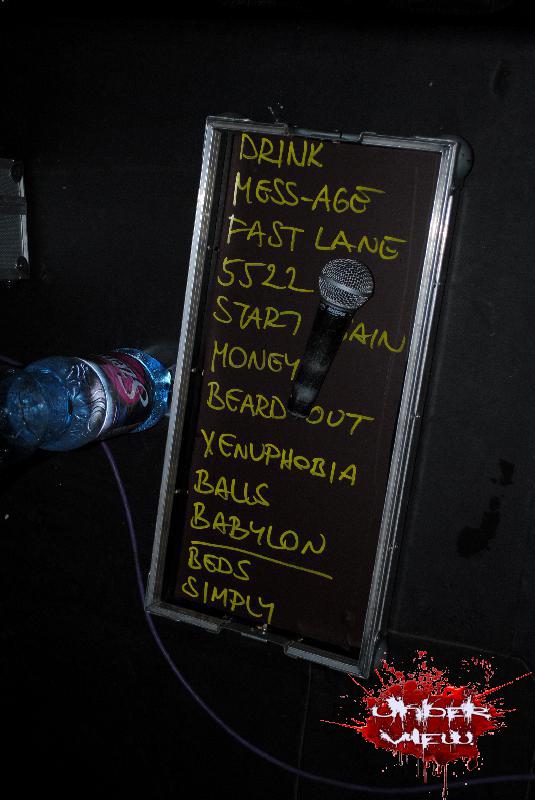 DRINK
MESS-AGE
FAST LANE
5522
START AIN
MONEY
BEARD OUT
XENUPHOBIA
BALLS
BABYLON
BEDS
SIMPLY
UNDER
VIEW